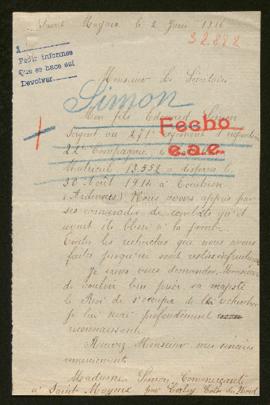 Saint Mayeux le 2 Juin 1916
32.882
Pedir informes
Que se hace así
Devolver
Monsieur le Secrétaire
Simon
Mon fils Edouard Simon
Sergent au 271e Régiment d'infanterie
22e Compagnie
Fecho
e.a.e.
Matricule 13552 a disparu le
30 Août 1914 à
(Ardennes) Nous avons appris par
ses camarades de combats qu'il
avait été blessé à la jambe.
Toutes les recherches que nous avons
faites jusqu'ici sont restées infructueuses
Je viens vous demander, Monsieur
de vouloir bien prier sa majesté
le Roi de s'occuper de les recherches
je lui serai profondément
reconnaissante.
Recevez Monsieur mes sincères
remerciements.
Madame Simon Commerçante
à Saint Mayeux par Corlay Côtes du Nord